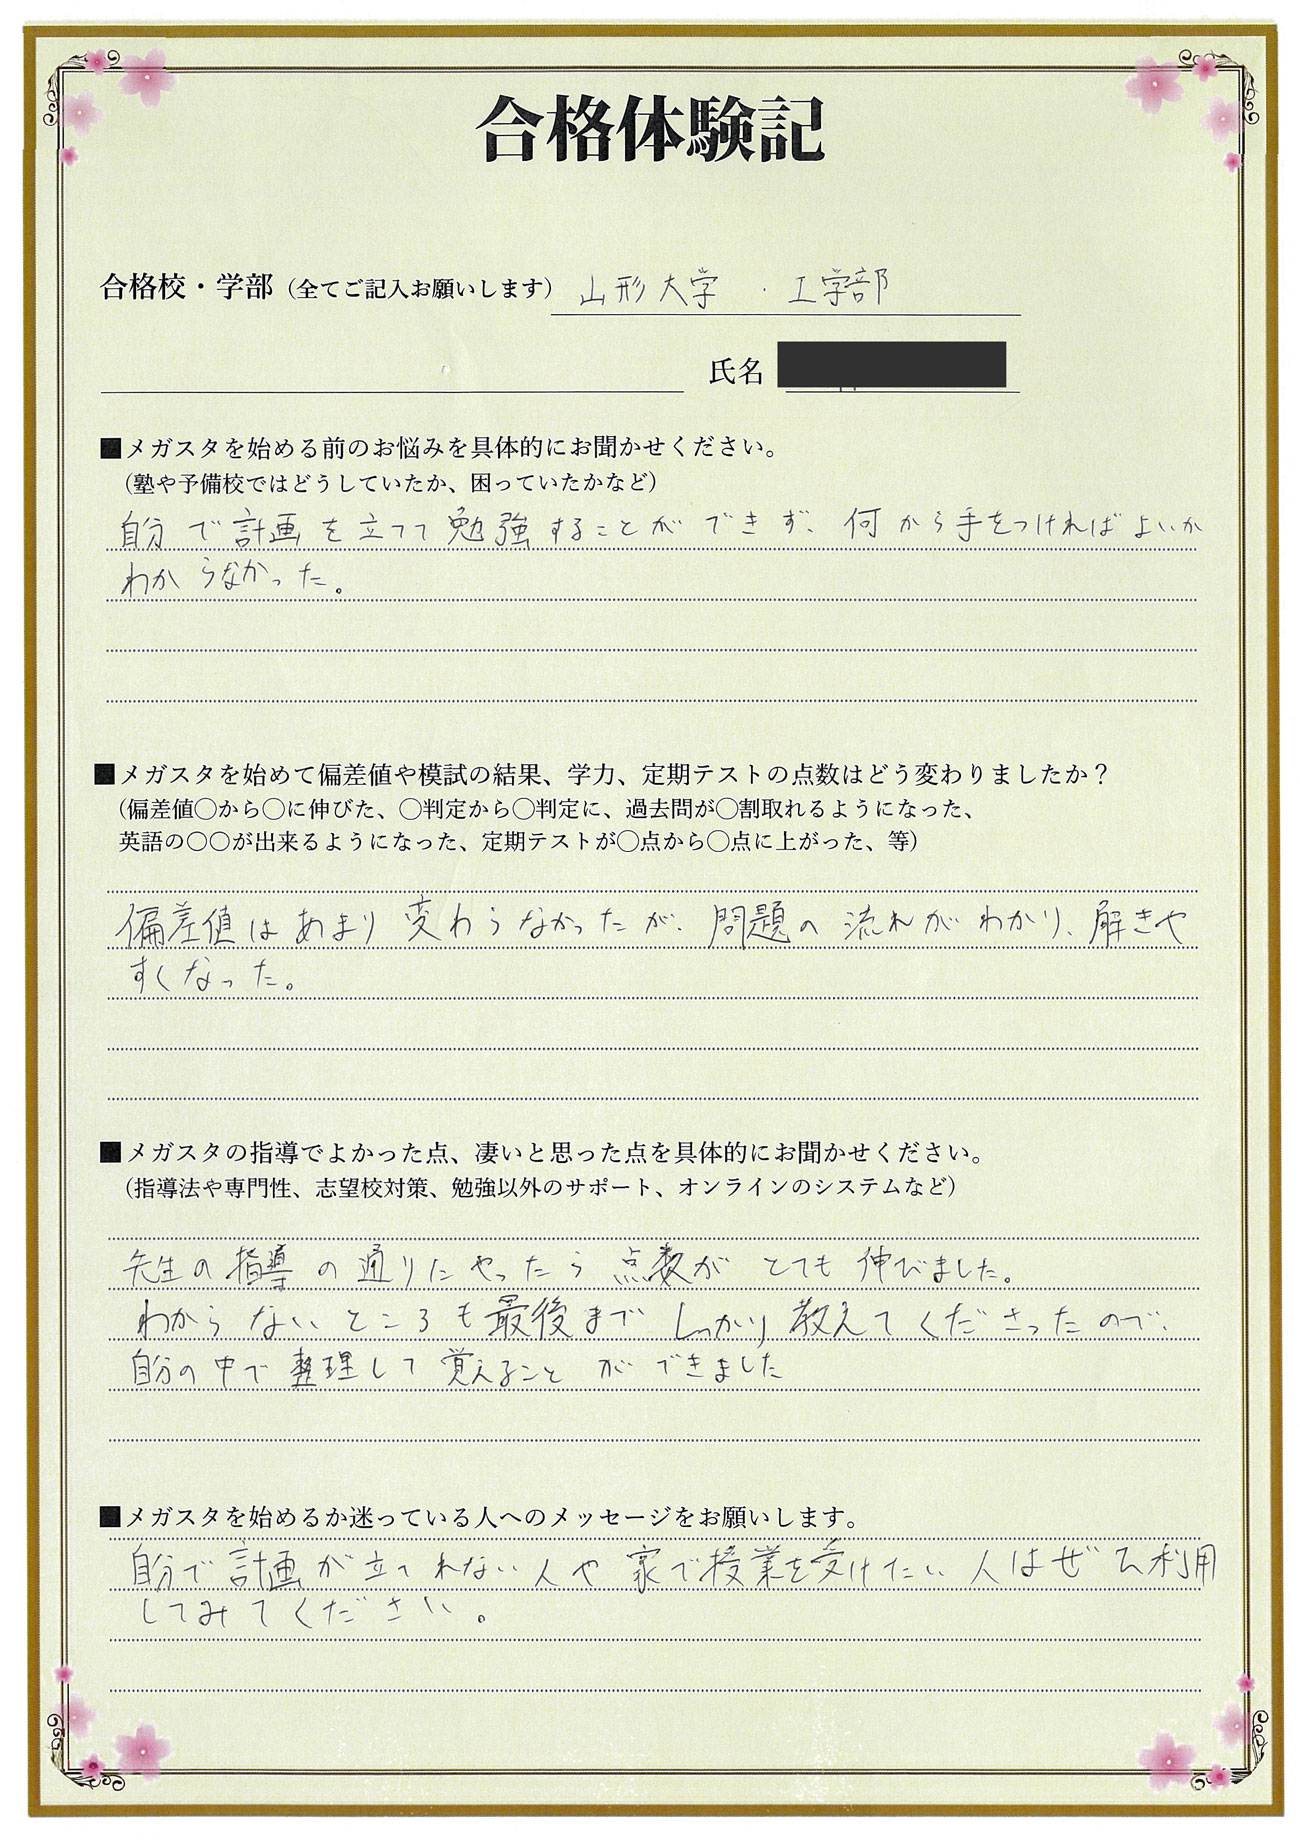 合格体験記
合格校・学部（全てご記入お願いします） 山形大学 ・ 工学部
氏名
■メガスタを始める前のお悩みを具体的にお聞かせください。
（塾や予備校ではどうしていたか、困っていたかなど）
自分で計画を立てて勉強することができず、何から手をつければよいか
わからなかった。
■メガスタを始めて偏差値や模試の結果、学力、定期テストの点数はどう変わりましたか？
（偏差値〇から〇に伸びた、〇判定から〇判定に、過去問が〇割取れるようになった、
英語の〇〇が出来るようになった、定期テストが〇点から〇点に上がった、等）
偏差値はあまり変わらなかったが、問題の流れがわかり、解きや
すくなった。
■メガスタの指導でよかった点、凄いと思った点を具体的にお聞かせください。
（指導法や専門性、志望校対策、勉強以外のサポート、オンラインのシステムなど）
先生の指導の通りにやったら点数がとても伸びました。
わからないところも最後までしっかり教えてくださったので、
自分の中で整理して覚えることができました
■メガスタを始めるか迷っている人へのメッセージをお願いします。
自分で計画が立てれない人や家で授業を受けたい人はぜひ利用
してみてください。